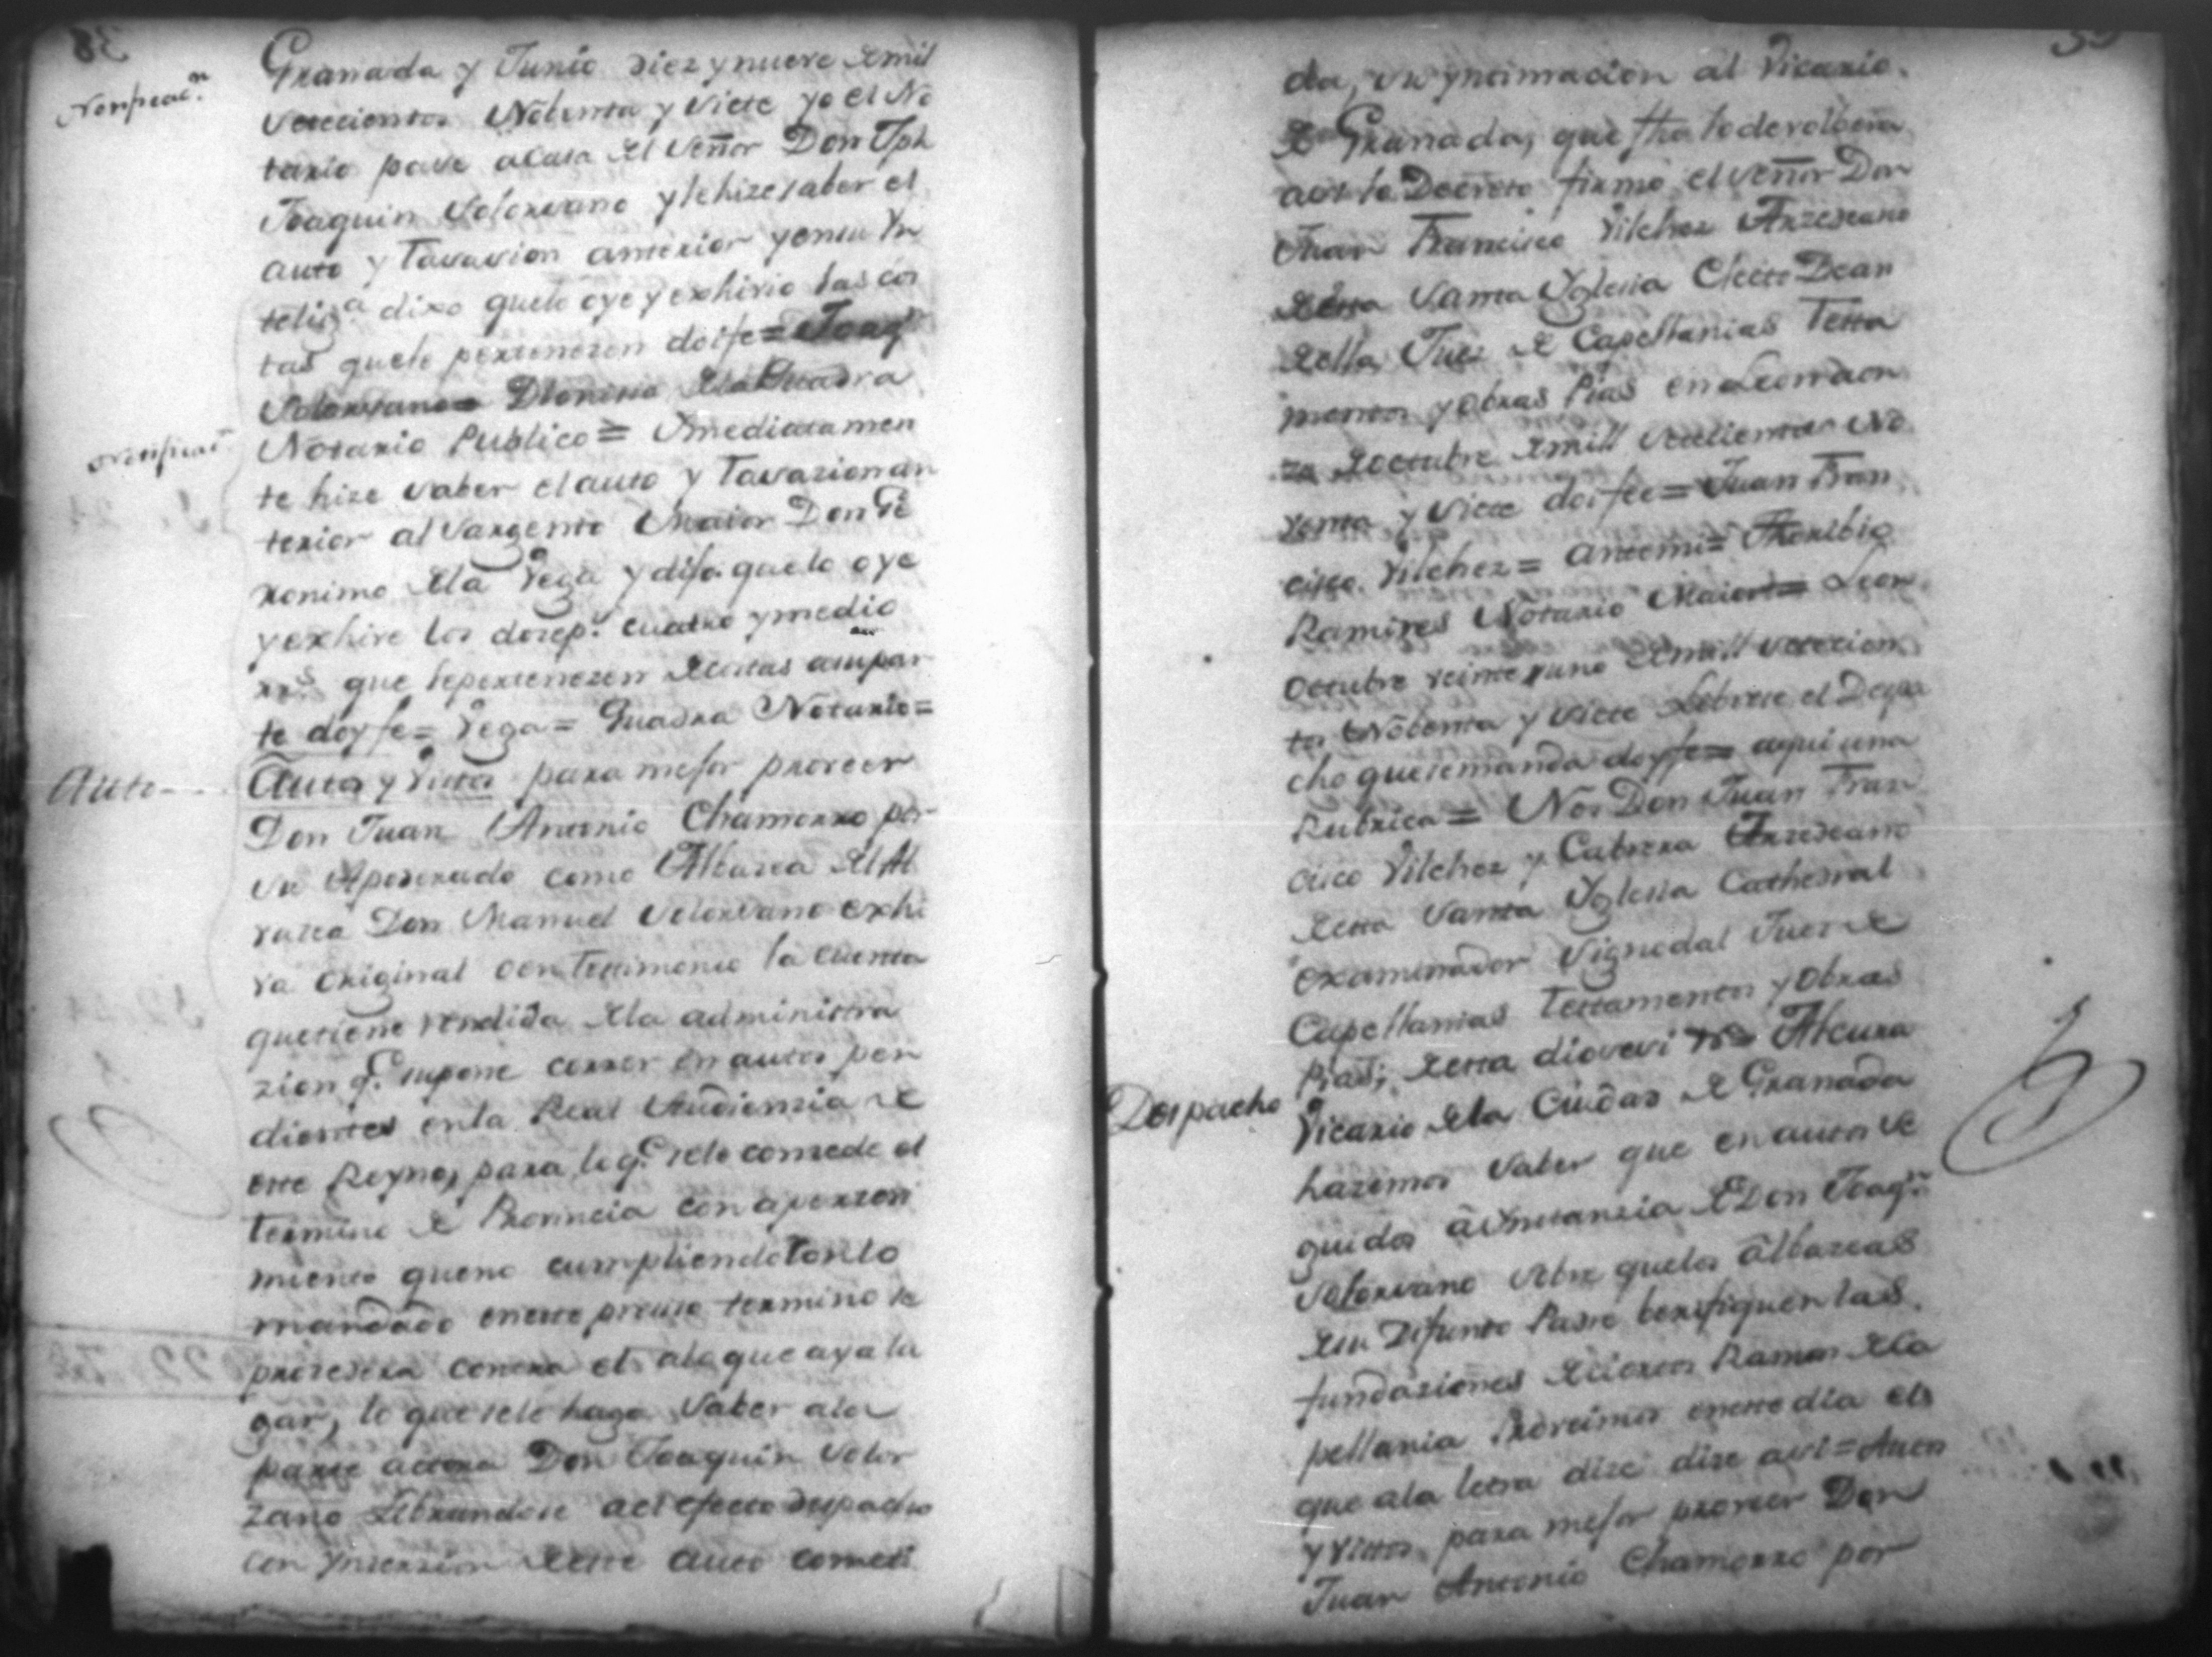 Notificac.n
Granada y Junio diez y nueve de mil
setecientos Nobenta y siete yo el No
tario pase a casa del señor Don Jph
Joaquin Solorsano y le hize saber el
auto y Tasasion anterior y en su Yn
telig.a dixo que lo oye y exhivio las cos
tas que le pertenezen doi fe = Joaq.n
Solorsano = Dionisio de la Quadra
Notificac.n
Notario Publico = Ynmediatamen
te hize saber el auto y Tasazion an
terior al Sargento Maior Don Ge
ronimo de la Vega y dijo que lo oye
y exhive los doze p.s cuatro y medio
rr.s que le pertenezen de costas a su par
te doy fe = Vega = Quadra Notario =
Auto
Autos y Vistos para mejor proveer
Don Juan Antonio Chamorro por
su Apoderado como Albazea del Al
vazea Don Manuel Solorsano exhi
va original o en testimonio la cuenta
que tiene rendida de la administra
zion q.e supone correr en autos pen
dientes en la Real Audienzia de
este Reyno, para lo q.e se le consede el
termino de Provincia con aperzevi
miento que no cumpliendo con lo
mandado en este presiso termino se
prozedera contra el a lo que aya lu
gar, lo que se le haga saber a la
parte actora Don Joaquin Solor
zano librandose a el efecto despacho
con ynserzion de este auto cometi
da, su ynthimacion al Vicario
de Granada, que fho lo devolbera
asi lo Decreto firmó el señor Don
Juan Francisco Vilchez Arzediano
de esta Santa Yglesia Electo Dean
de ella, Juez de Capellanias Testa
mentos y obras Pias en Leon a on
ze de octubre de mill setecientos No
venta y siete doi fee = Juan Fran
cisco Vilchez = Ante mi = Thoribio
Ramires Notario Maior = Leon
Octubre veinte y uno de mill setecien
tos Nobenta y siete Librose el Despa
cho que se manda doy fe = aqui una
Rubrica = Nos Don Juan Fran
cisco Vilchez y Cabrera Arzediano
de esta Santa Yglesia Cathedral
examinador Signodal Juez de
Capellanias Testamentos y obras
Pias, de esta diosesi
Despacho
Vicario de la Ciudad de Granada
hazemos saber que en autos se
guidos á Ynstanzia de Don Joaq.n
Solorsano sobre que los albazeas
de su Difunto Padre berifiquen las
fundaziones de ciertos Ramos de Ca
pellania Proveimos en este dia el
que a la letra dize dize asi = Autos
y vistos para mejor proveer Don
Juan Antonio Chamorro por